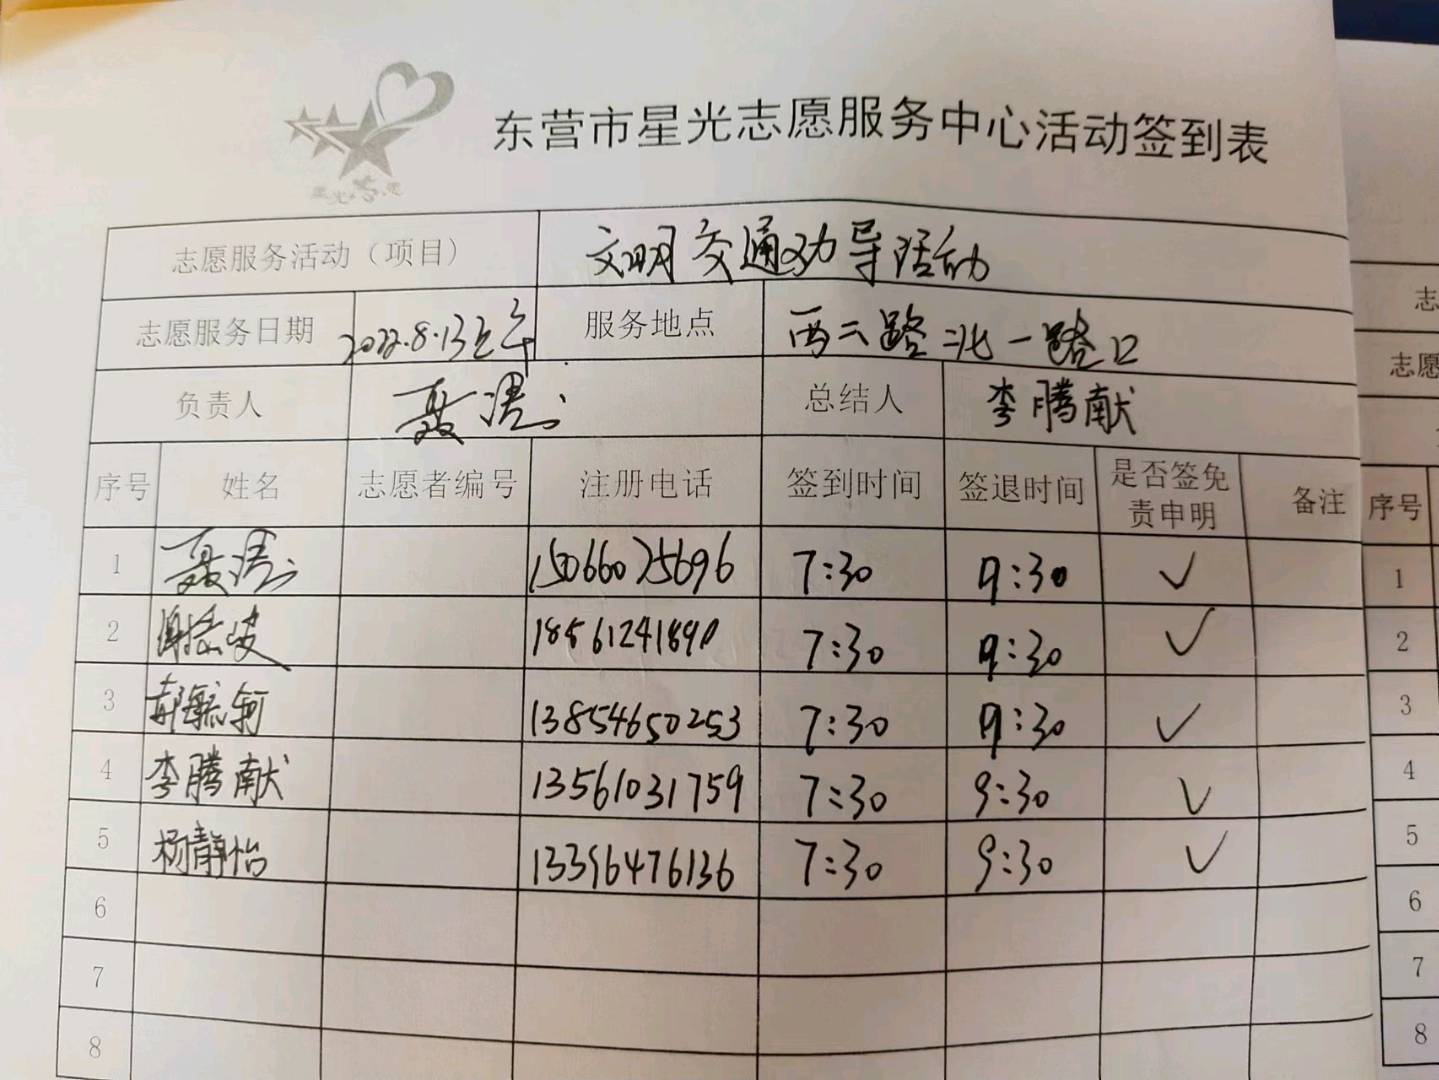 东营市星光志愿服务中心活动签到表
志愿服务活动（项目） 文明交通劝导活动
志愿服务日期 2022.8.13上午 服务地点 西二路北一路口
负责人 聂涝 总结人 李腾献
序号 姓名 志愿者编号 注册电话 签到时间 签退时间 是否签免责申明 备注
1 15066025696 7:30 9:30 ✓
2 18561241890 7:30 9:30 ✓
3 13854650253 7:30 9:30 ✓
4 李腾献 13561031759 7:30 9:30 ✓
5 杨静怡 13396476136 7:30 9:30 ✓
6
7
8
志
志愿
序号
1
2
3
4
5
6
7
8